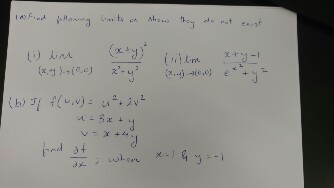 (a) Find following limits or show they do not exist
(i) lim (x,y)→(0,0) (x+y)² / x²+y² (ii) lim (x,y)→(0,0) x+y-1 / e^x² + y²
(b) If f(u,v) = u² + 2v²
u = 3x + y
v = x + 4y
find ∂f/∂x, when x=1 & y=-1